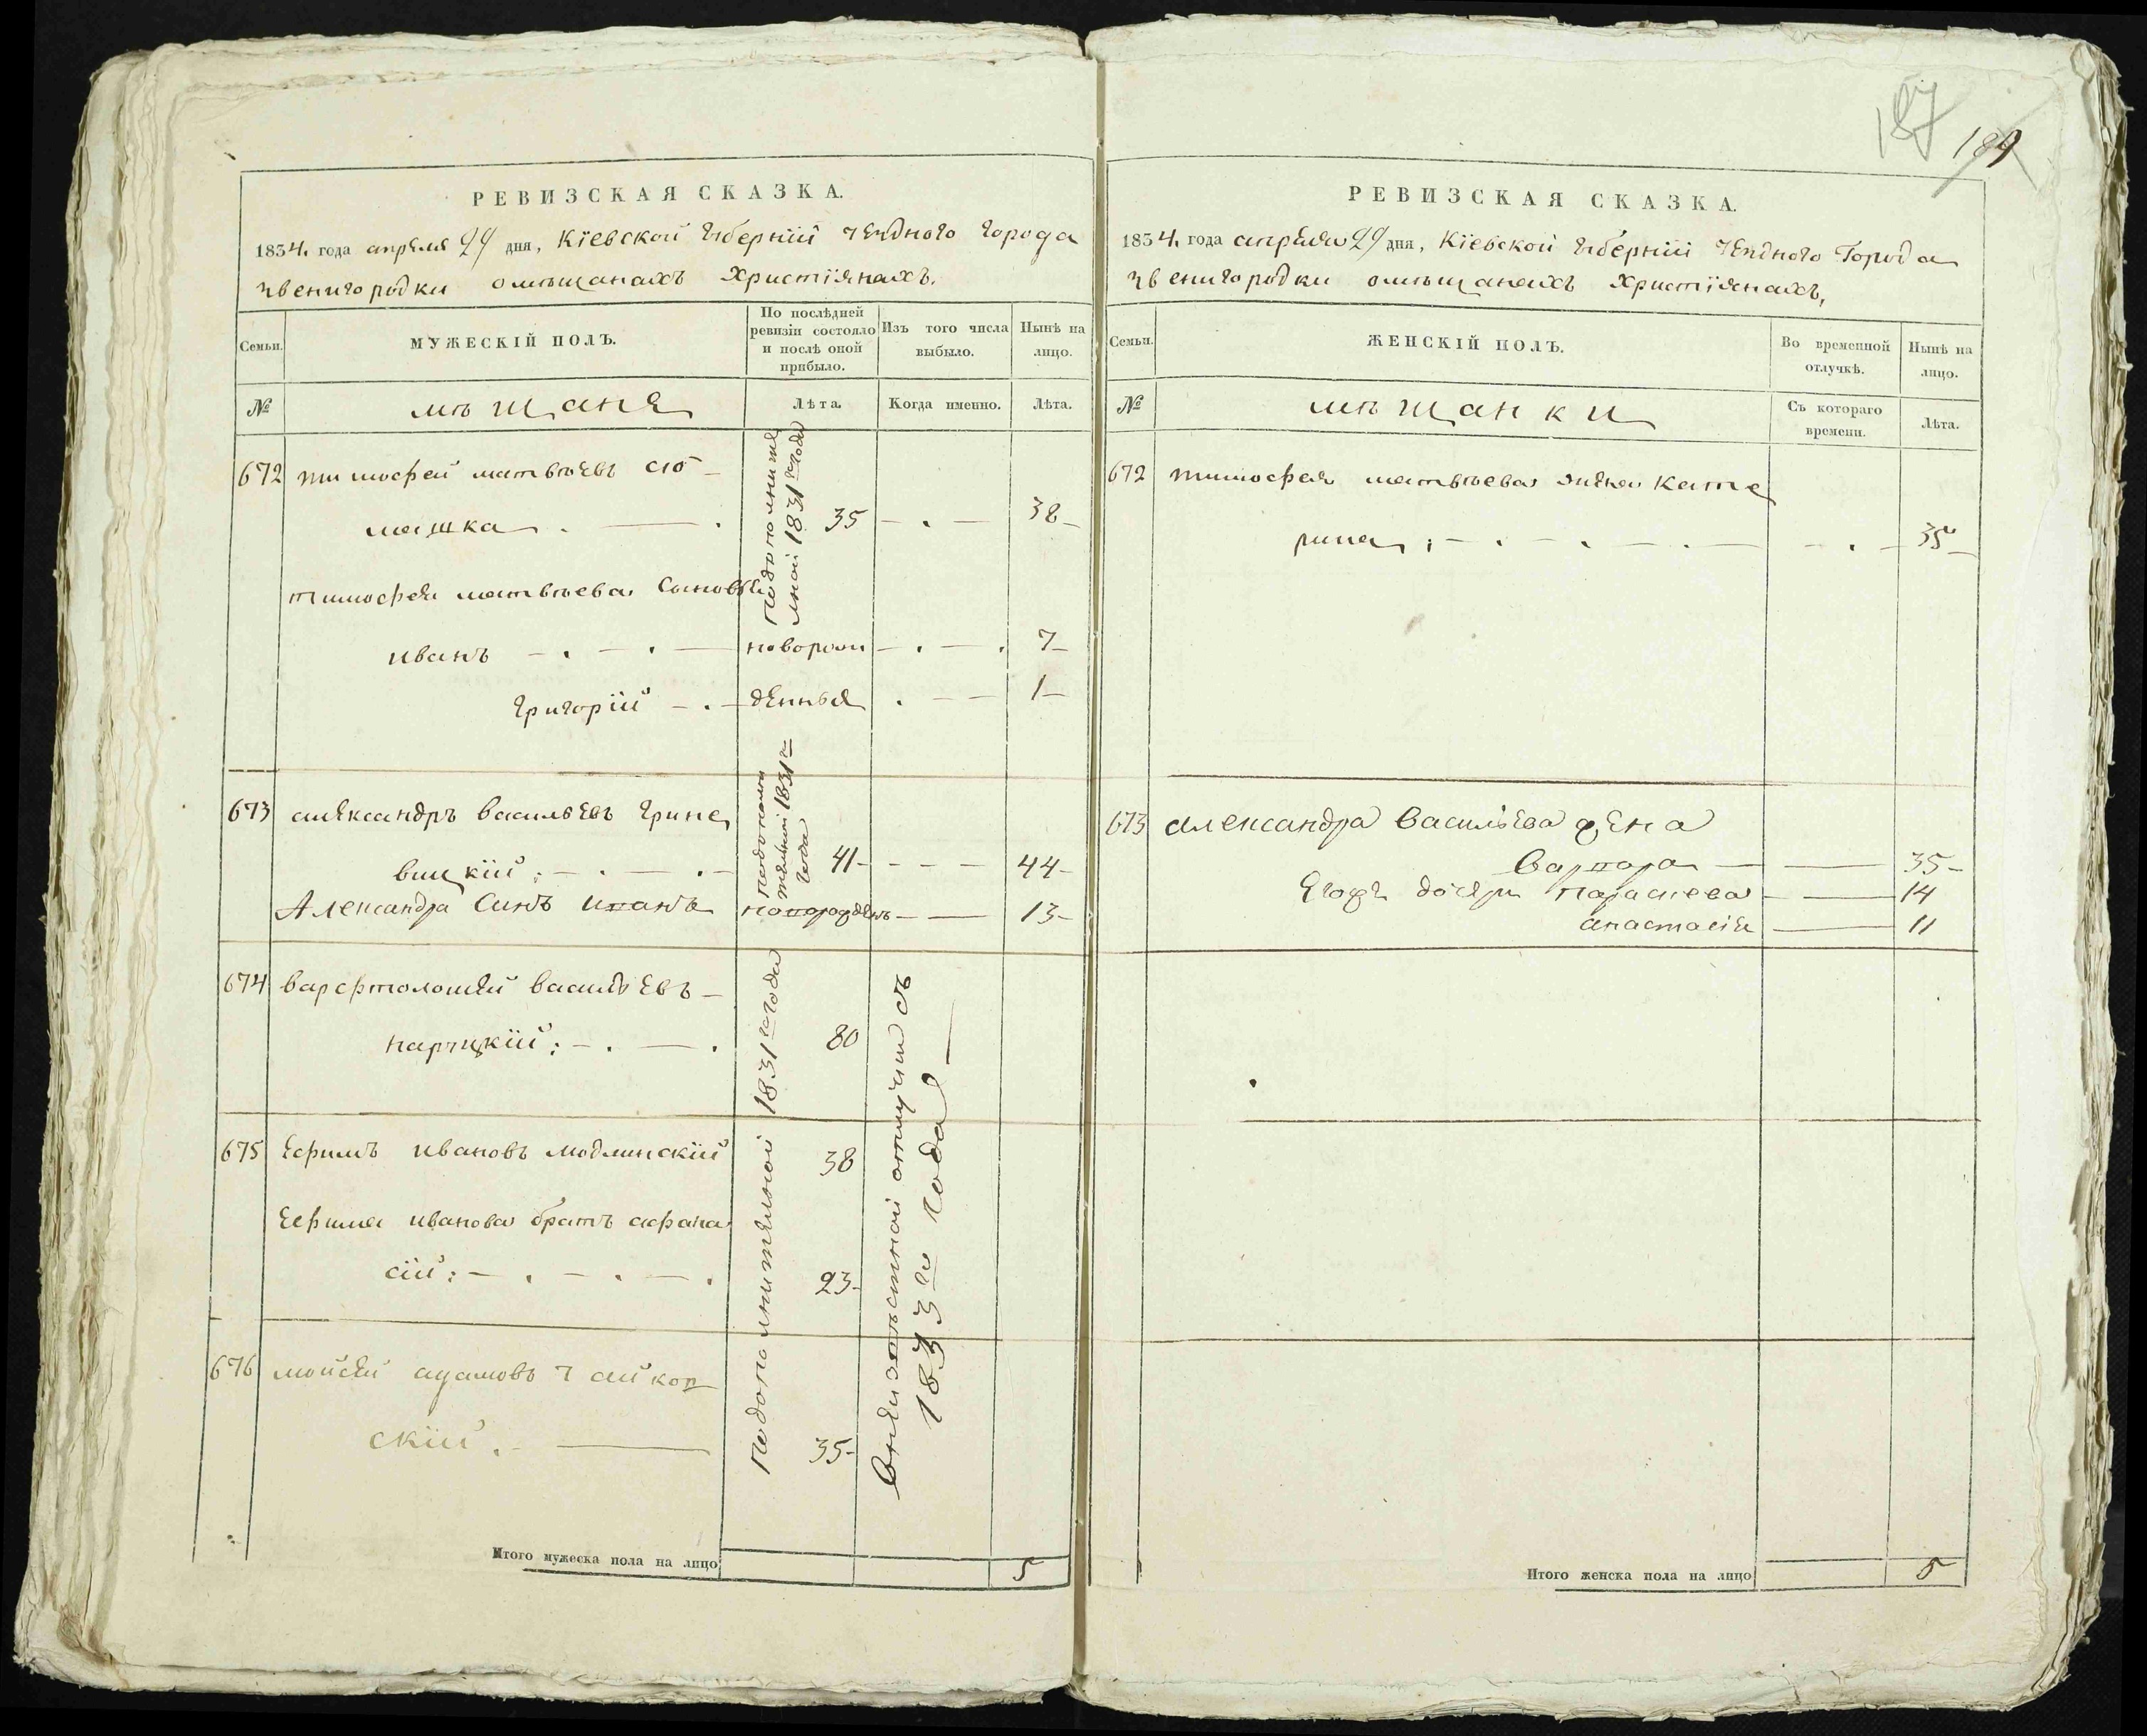 187 189
РЕВИЗСКАЯ СКАЗКА.
1834 года апреля 29 дня, Кіевской губерніи уезднаго города
звенигородки о мѣщанахъ Христіянахъ.
Семьи.
МУЖЕСКІЙ ПОЛЪ.
По послѣдней ревизіи состояло и послѣ оной прибыло.
Изъ того числа выбыло.
Нынѣ на лицо.
№
мѣщане
Лѣта.
Когда именно.
Лѣта.
672 тимофей матвѣевъ сто-
машка 35 38
по дополните
льной 1831го года
тимофея матвѣева сыновья
иванъноворож 7
григорій денныя 1
673 александръ васильевъ грине
вицкій: 41 44
по дополни
тельной 1831го
года
Александра Синъ Иванъ новорожденъ 13
674 варфтоломей васильевъ
нарицкій: 80
675 Ефимъ ивановъ модлинскій 38
Ефима иванова братъ афана
сій: 23
676 мойсей адамовъ чайков
скій. 35
по дополнительной 1831го года
в неизвѣстной отлучитсъ
1833го года
Итого мужеска пола на лицо 5
РЕВИЗСКАЯ СКАЗКА.
1834 года апреля 29 дня, Кіевской губерніи уезднаго Города
звенигородки о мѣщанахъ Христіянахъ,
Семьи.
ЖЕНСКІЙ ПОЛЪ.
Во временной отлучкѣ.
Нынѣ на лицо.
№
мѣщанки
Съ котораго времени.
Лѣта.
672 тимофея матвѣева жена кате
рина; 35
673 Александра Васильева жена
Варвара 35
Егожъ дочери Параскева 14
анастасія 11
Итого женска пола на лицо 5